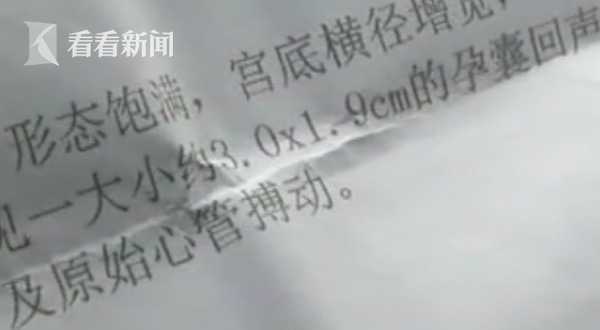 看看新闻
形态饱满，宫底横径增宽，
见一大小约3.0x1.9cm的孕囊回声
及原始心管搏动。